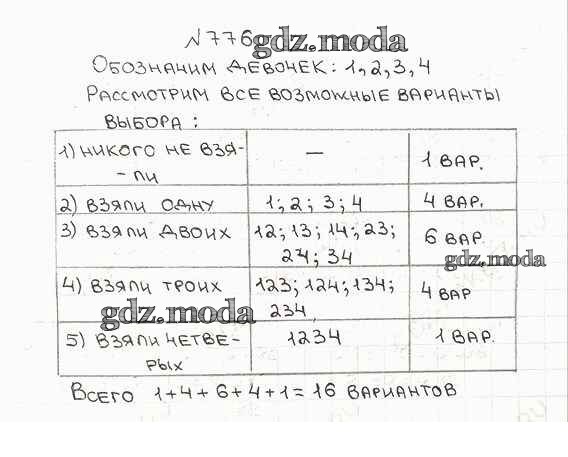 №776
gdz.moda
Обозначим девочек: 1, 2, 3, 4
Рассмотрим все возможные варианты
выбора:
1) никого не взя- — 1 вар.
- ли
2) взяли одну 1; 2; 3; 4 4 вар.
3) взяли двоих 12; 13; 14; 23; 6 вар.
24; 34
gdz.moda
4) взяли троих 123; 124; 134; 4 вар
234
gdz.moda
5) взяли четве- 1234 1 вар.
рых
Всего 1+4+6+4+1=16 вариантов